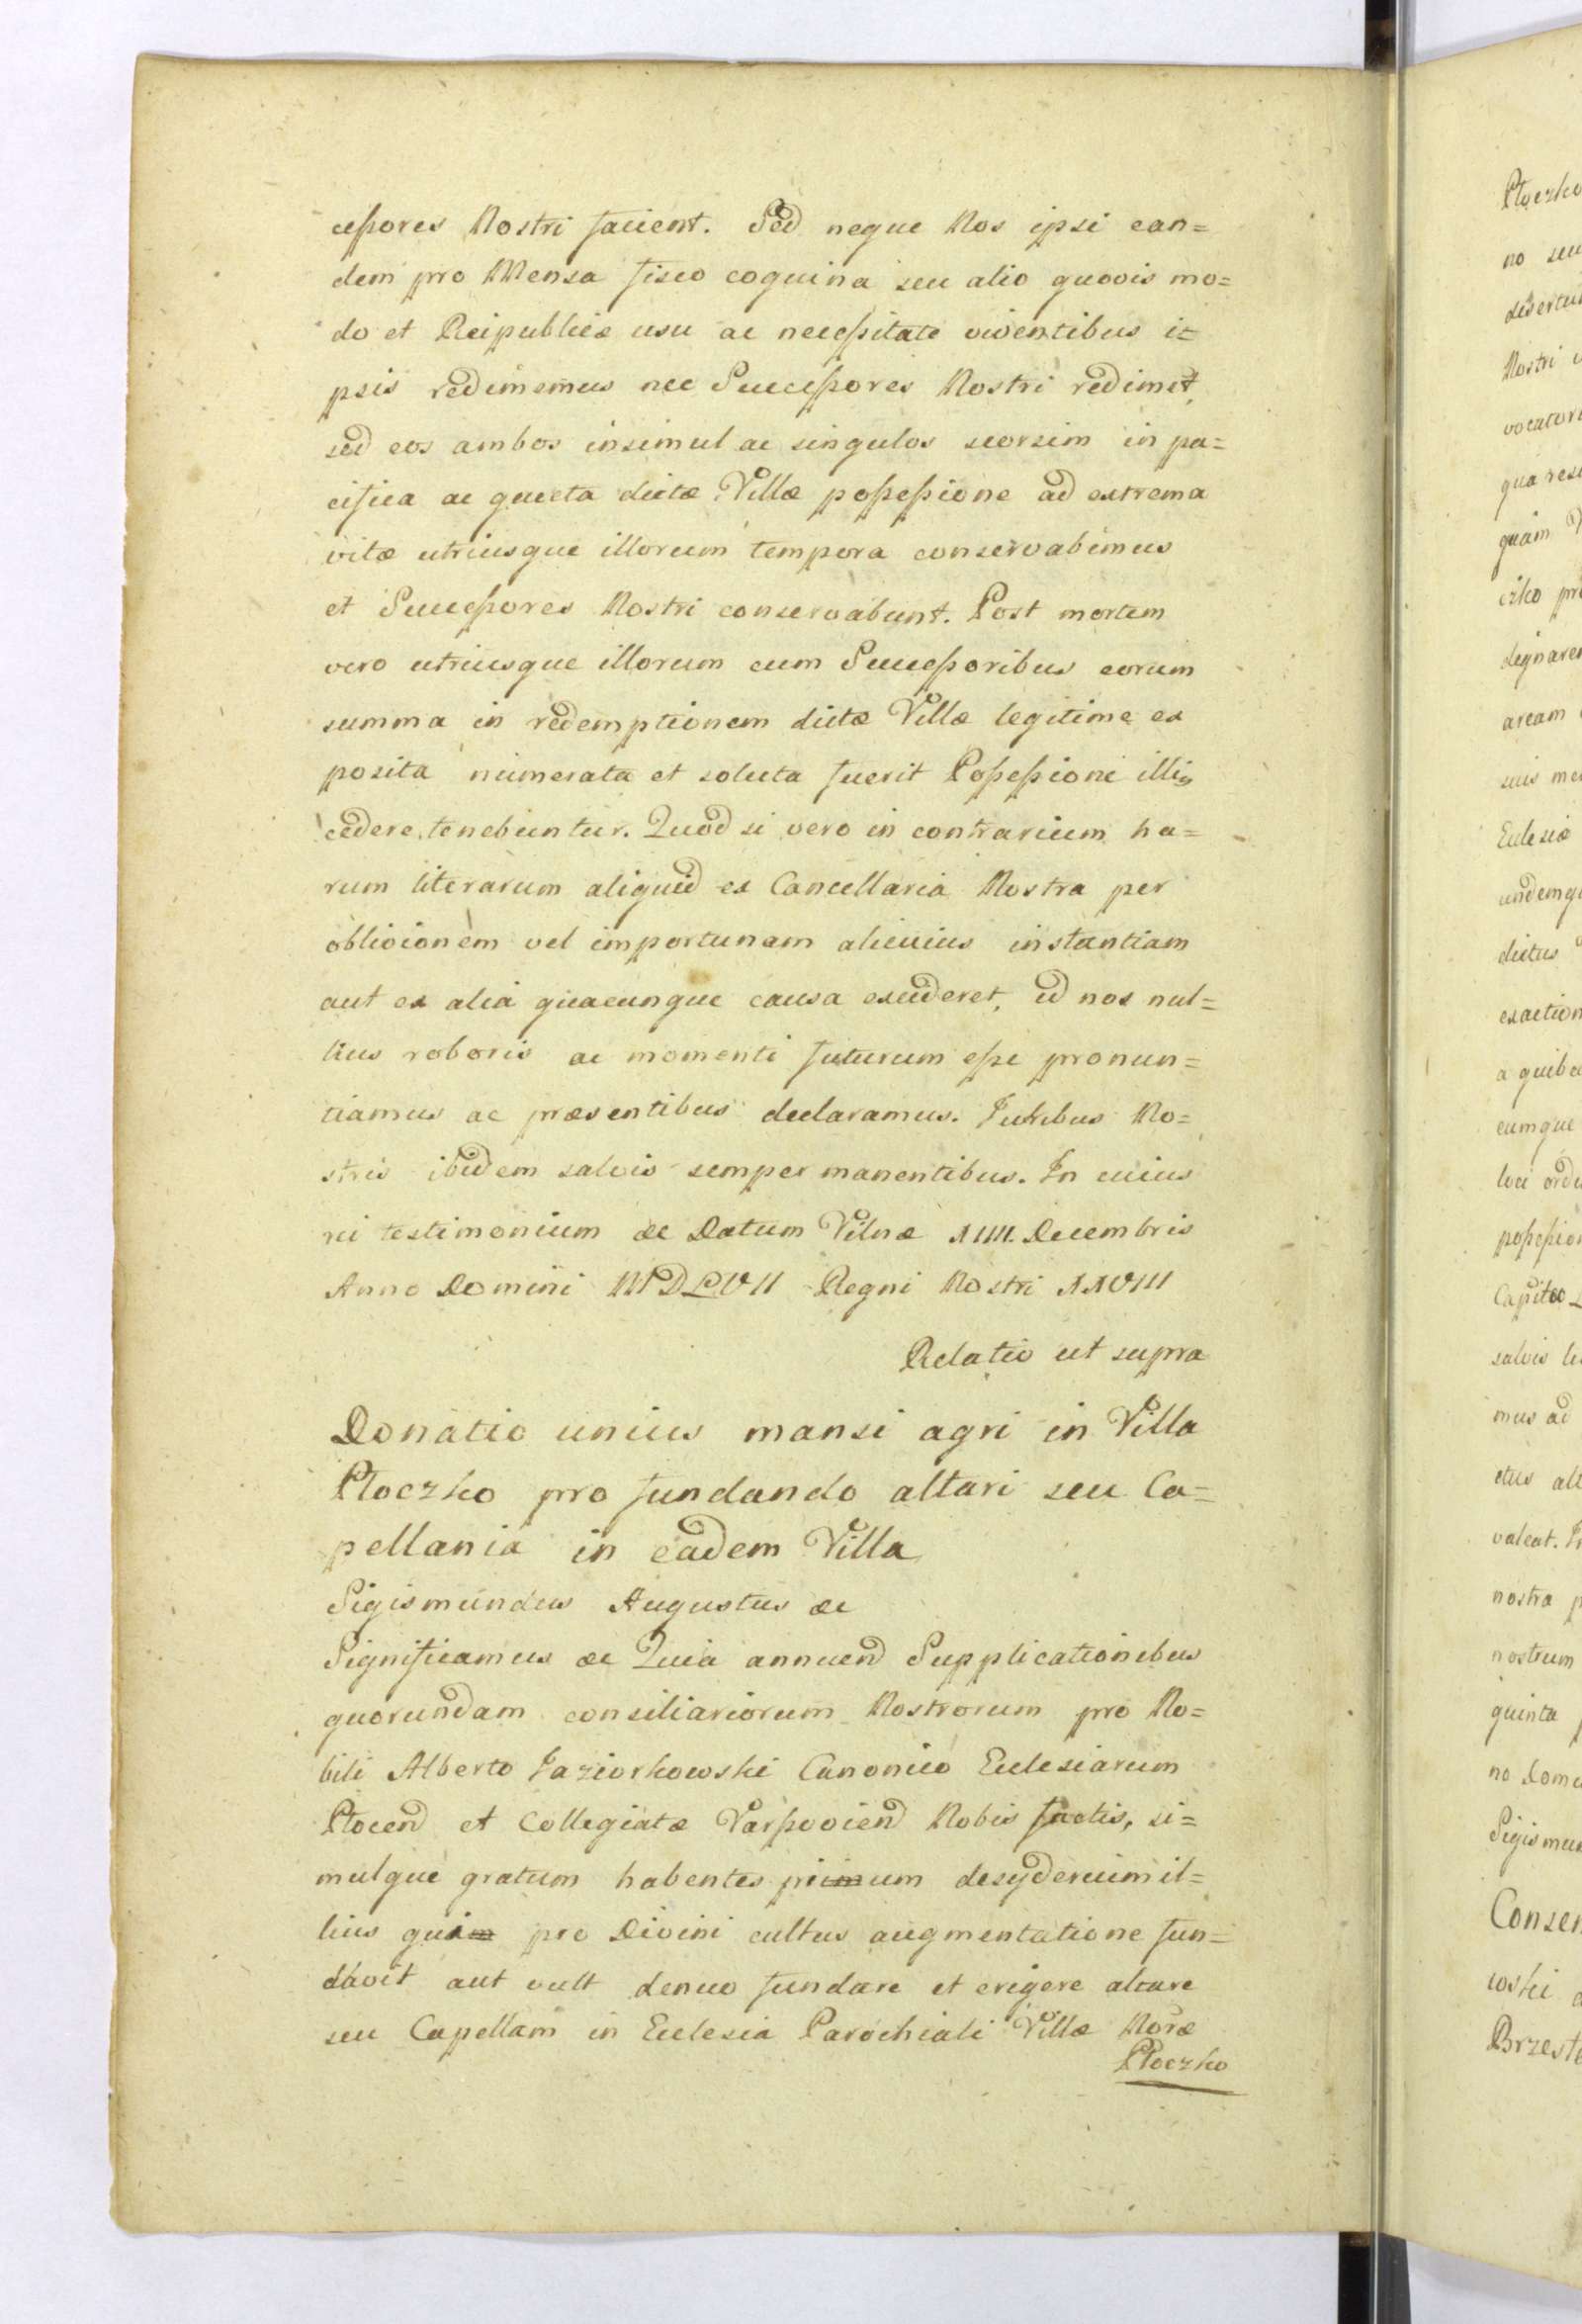 cessores Nostri facient. Sed neque Nos ipsi ean=
dem pro Mensa fisco coquina seu alio quovis mo=
do et Reipublicæ usu ac necessitate viventibus i=
psis redimemus nec Successores Nostri rediment,
sed eos ambos insimul ac singulos seorsim in pa=
cifica ac quieta dictæ Villæ possessione ad extrema
vitæ utriusque illorum tempora conservabimus
et Successores Nostri conservabunt. Post mortem
vero utriusque illorum cum Successoribus eorum
summa in redemptionem dictæ Villæ legitime ex
posita numerata et soluta fuerit Possessioni illi
cedere tenebuntur. Quod si vero in contrarium ha=
rum literarum aliquid ex Cancellaria Nostra per
oblivionem vel importunam alicuius instantiam
aut ex alia quacunque causa excideret, id nos nul=
lius roboris ac momenti futurum esse pronun=
tiamus ac præsentibus declaramus. Juribus No=
stris ibidem salvis semper manentibus. In cuius
rei testimonium &c Datum Vilnæ XIIII. Decembris
Anno Domini MDLVII Regni Nostri XXVIII
Relatio ut supra
Donatio unius mansi agri in Villa
Ploczko pro fundando altari seu Ca=
pellania in eadem Villa
Sigismundus Augustus &c
Significamus &c Quia annuend Supplicationibus
quorundam consiliariorum Nostrorum pro No=
bili Alberto Jaziorkowski Canonico Ecclesiarum
Plocend et Collegiatæ Varssoviend Nobis factis, si=
mulque gratum habentes pium desyderium il=
lius qui pro Divini cultus augmentatione fun=
davit aut vult denuo fundare et erigere altare
seu Capellam in Ecclesia Parochiali Villæ Noræ
Ploczko
Ploczko
no seu
Nostri
vocator
qua resi
quam
czko pr
dignare
aream
suis me
Eclesiæ
undemq
dictus
exaction
a quibu
cumque
loci ordi
possession
Capiteo
salvis
mus ad
ctus alt
valeat.
nostra p
nostrum
quinta
no Domi
Sigismun
Consen
woski
Brzest